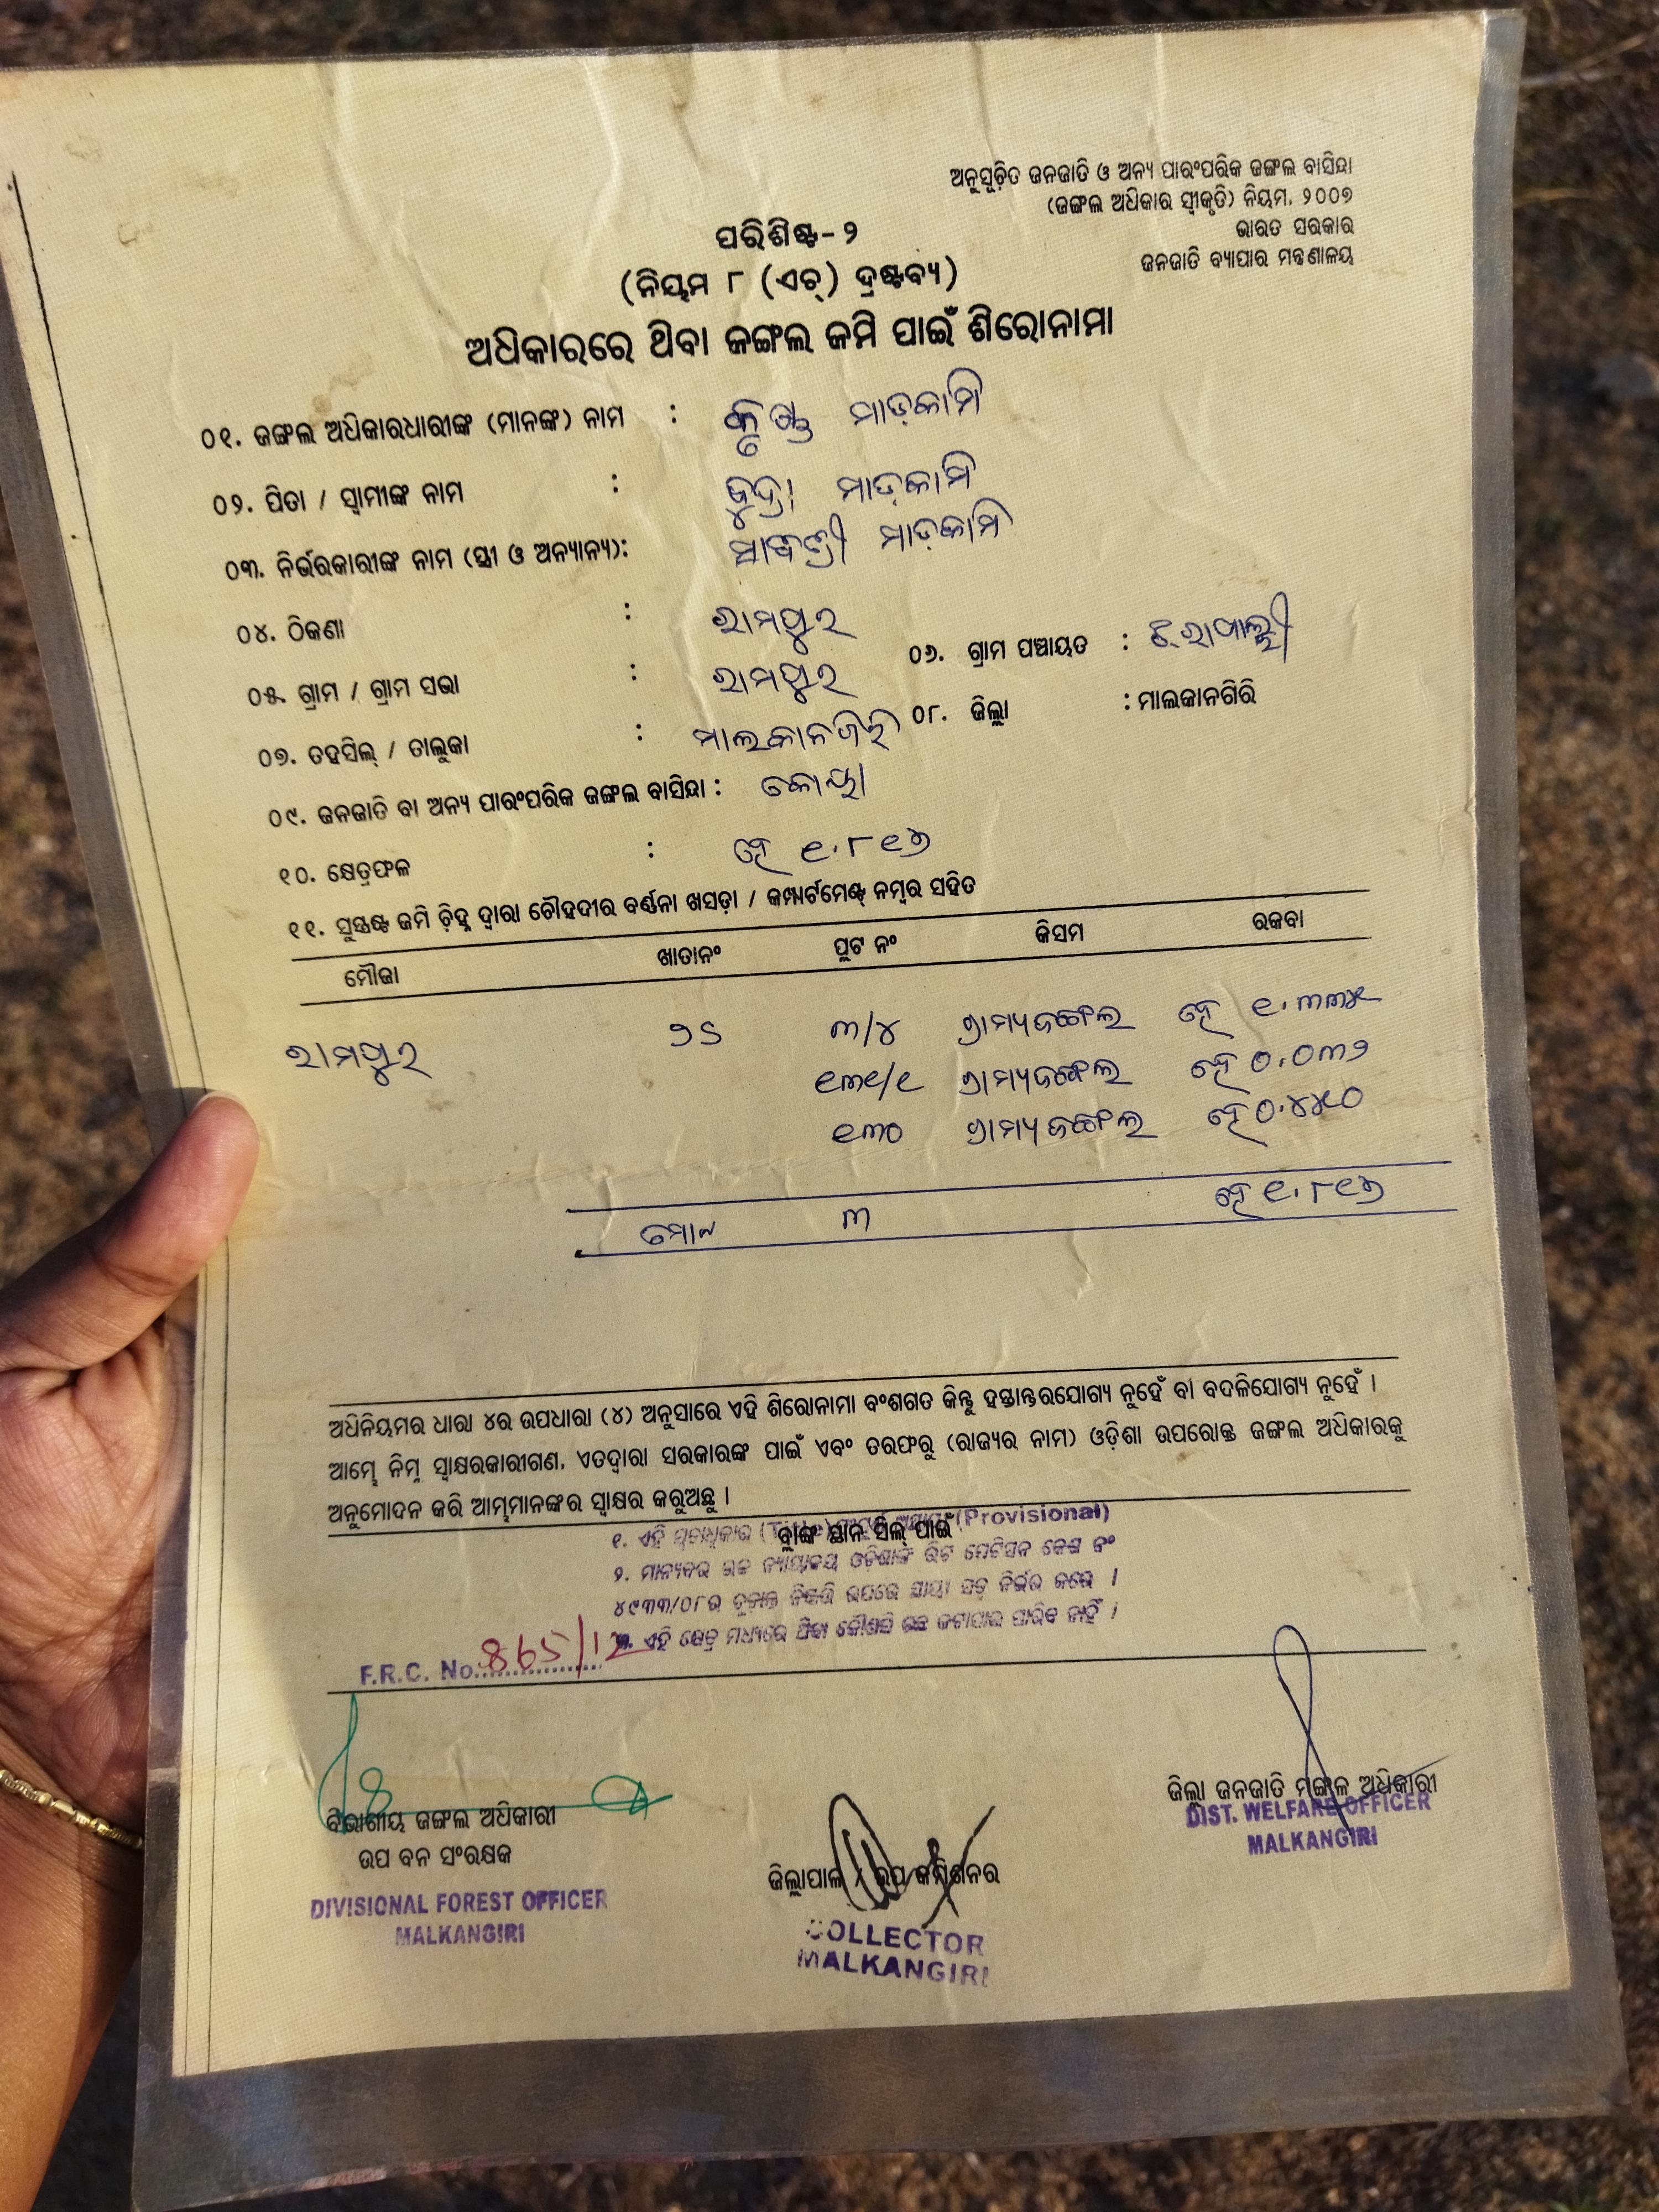 ଅନୁସୂଚିତ ଜନଜାତି ଓ ଅନ୍ୟ ପାରଂପରିକ ଜଙ୍ଗଲ ବାସିନ୍ଦା
(ଜଙ୍ଗଲ ଅଧିକାର ସ୍ୱୀକୃତି) ନିୟମ, ୨୦୦୭
ଭାରତ ସରକାର
ଜନଜାତି ବ୍ୟାପାର ମନ୍ତ୍ରଣାଳୟ
ପରିଶିଷ୍ଟ-୨
(ନିୟମ ୮ (ଏଚ୍) ଦ୍ରଷ୍ଟବ୍ୟ)
ଅଧିକାରରେ ଥିବା ଜଙ୍ଗଲ ଜମି ପାଇଁ ଶିରୋନାମା
୦୧. ଜଙ୍ଗଲ ଅଧିକାରଧାରୀଙ୍କ (ମାନଙ୍କ) ନାମ : କୃଷ୍ଣ ମାଡ଼କାମି
୦୨. ପିତା / ସ୍ୱାମୀଙ୍କ ନାମ : ମାଡ଼କାମି
୦୩. ନିର୍ଭରକାରୀଙ୍କ ନାମ (ସ୍ତ୍ରୀ ଓ ଅନ୍ୟାନ୍ୟ): ମାଡ଼କାମି
୦୪. ଠିକଣା : ରାମପୁର
୦୫. ଗ୍ରାମ / ଗ୍ରାମ ସଭା : ରାମପୁର ୦୬. ଗ୍ରାମ ପଞ୍ଚାୟତ :
୦୭. ତହସିଲ୍ / ତାଲୁକା : ମାଲକାନଗିରି ୦୮. ଜିଲ୍ଲା : ମାଲକାନଗିରି
୦୯. ଜନଜାତି ବା ଅନ୍ୟ ପାରଂପରିକ ଜଙ୍ଗଲ ବାସିନ୍ଦା : କୋୟା
୧୦. କ୍ଷେତ୍ରଫଳ : ହେ ୧.୮୧୭
୧୧. ସୁସ୍ପଷ୍ଟ ଜମି ଚିହ୍ନ ଦ୍ୱାରା ଚୌହଦୀର ବର୍ଣ୍ଣନା ଖସଡ଼ା / କମ୍ପାର୍ଟମେଣ୍ଟ୍ ନମ୍ବର ସହିତ
ମୌଜା ଖାତାନଂ ପ୍ଲଟ ନଂ କିସମ ରକବା
ରାମପୁର ୩/୪ ଗ୍ରାମ୍ୟଜଙ୍ଗଲ ହେ ୧.୩୩୫
୧୩୧/୧ ଗ୍ରାମ୍ୟଜଙ୍ଗଲ ହେ ୦.୦୩୨
୧୩୦ ଗ୍ରାମ୍ୟଜଙ୍ଗଲ ହେ ୦.୪୫୦
ମୋଟ ୩ ହେ ୧.୮୧୭
ଅଧିନିୟମର ଧାରା ୪ର ଉପଧାରା (୪) ଅନୁସାରେ ଏହି ଶିରୋନାମା ବଂଶଗତ କିନ୍ତୁ ହସ୍ତାନ୍ତରଯୋଗ୍ୟ ନୁହେଁ ବା ବଦଳିଯୋଗ୍ୟ ନୁହେଁ ।
ଆମ୍ଭେ ନିମ୍ନ ସ୍ୱାକ୍ଷରକାରୀଗଣ, ଏତଦ୍ଦ୍ୱାରା ସରକାରଙ୍କ ପାଇଁ ଏବଂ ତରଫରୁ (ରାଜ୍ୟର ନାମ) ଓଡ଼ିଶା ଉପରୋକ୍ତ ଜଙ୍ଗଲ ଅଧିକାରକୁ
ଅନୁମୋଦନ କରି ଆମ୍ଭମାନଙ୍କର ସ୍ୱାକ୍ଷର କରୁଅଛୁ ।
ବ୍ଲାଙ୍କ ସ୍ଥାନ ସିଲ୍ ପାଇଁ
୧. ଏହି (Provisional)
୨. ମାନ୍ୟବର ଉଚ୍ଚ ନ୍ୟାୟାଳୟ ଓଡ଼ିଶାଙ୍କ ରିଟ ପେଟିସନ କେଶ ନଂ
୪୯୩୩/୦୮ର ଚୂଡ଼ାନ୍ତ ନିଷ୍ପତ୍ତି ଉପରେ ନିର୍ଭର କରେ ।
୩. ଏହି କ୍ଷେତ୍ର ମଧ୍ୟରେ ଥିବା କୌଣସି ଗଛ କଟାଯାଇ ପାରିବ ନାହିଁ ।
F.R.C. No. 865/12
ବିଭାଗୀୟ ଜଙ୍ଗଲ ଅଧିକାରୀ
ଉପ ବନ ସଂରକ୍ଷକ
DIVISIONAL FOREST OFFICER
MALKANGIRI
ଜିଲ୍ଲାପାଳ / ଉପ କମିଶନର
COLLECTOR
MALKANGIRI
ଜିଲ୍ଲା ଜନଜାତି ମଙ୍ଗଳ ଅଧିକାରୀ
DIST. WELFARE OFFICER
MALKANGIRI